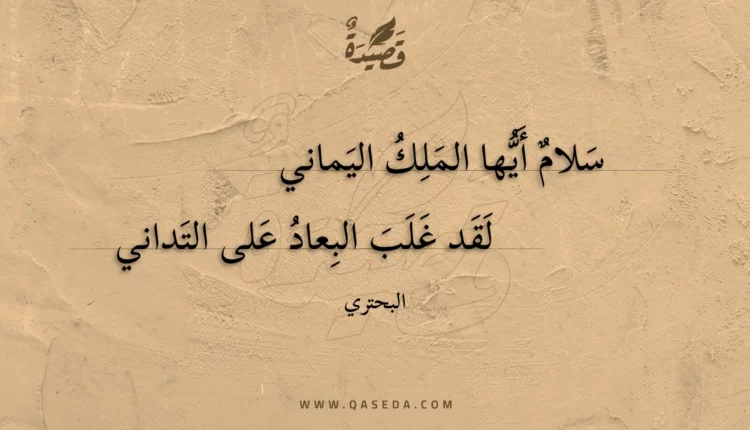 قَصِيْدَةٌ
سَلامٌ أَيُّها المَلِكُ اليَماني
لَقَد غَلَبَ البِعادُ عَلى التَداني
البحتري
WWW.QASEDA.COM